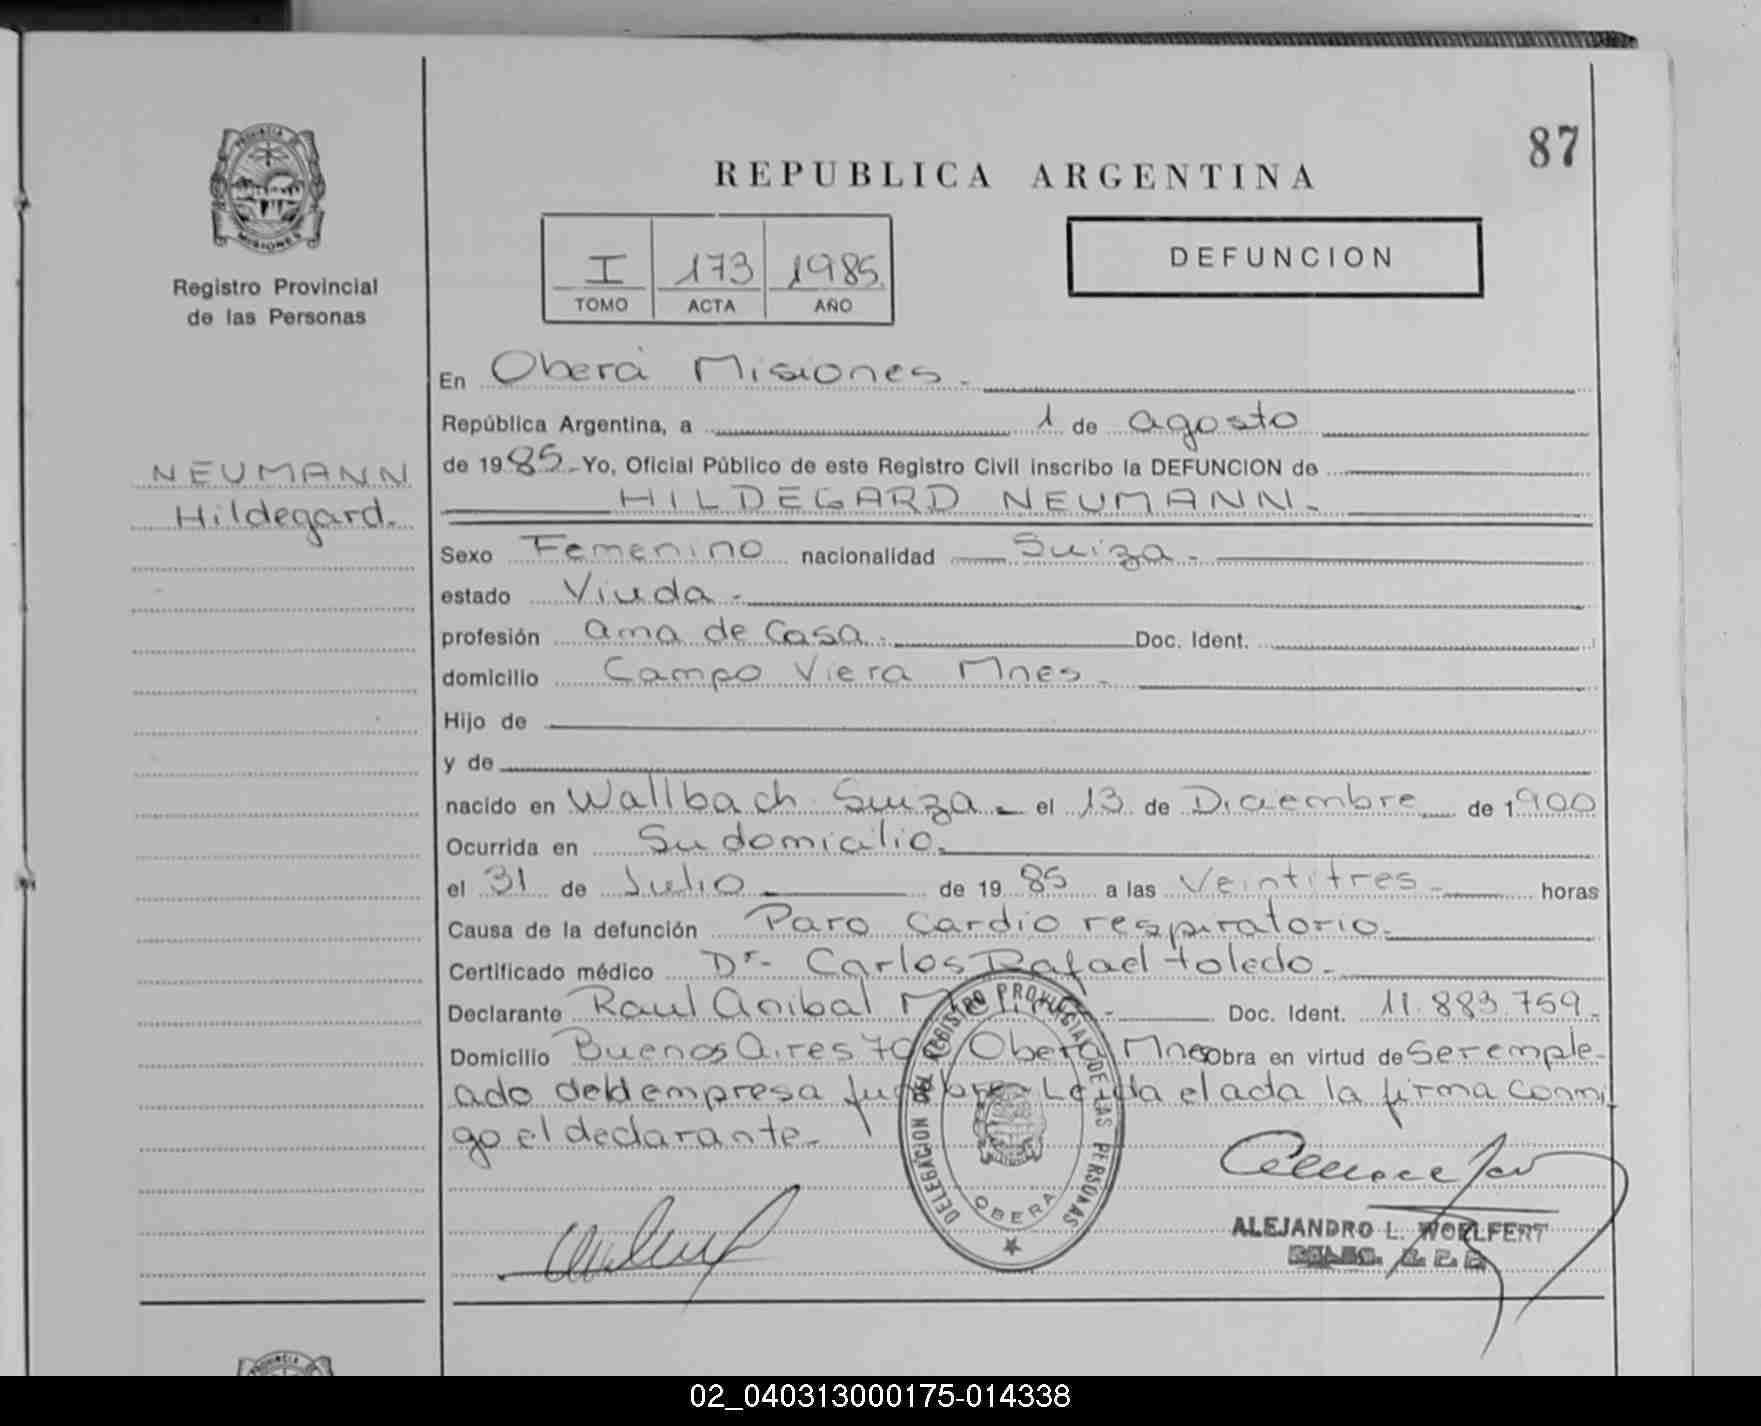 87
REPUBLICA ARGENTINA
PROVINCIA DE
MISIONES
Registro Provincial
de las Personas
I 173 1985.
TOMO ACTA AÑO
DEFUNCION
En Oberá Misiones.
República Argentina, a 1 de agosto
de 1985 - Yo, Oficial Público de este Registro Civil inscribo la DEFUNCION de
NEUMANN
Hildegard.
HILDEGARD NEUMANN.
Sexo Femenino nacionalidad Suiza.
estado Viuda.
profesión ama de Casa. Doc. Ident.
domicilio Campo Viera Mnes.
Hijo de
y de
nacido en Wallbach Suiza el 13 de Diciembre de 1900
Ocurrida en Su domicilio.
el 31 de Julio de 19 85 a las Veintitres horas
Causa de la defunción Paro Cardio respiratorio.
Certificado médico Dr. Carlos Rafael toledo.
Declarante Raul Anibal Doc. Ident. 11.883.759.
Domicilio Buenos Aires Oberá Mnes Obra en virtud de Ser emple-
ado de empresa Leida el acta la firma Conmi
go el declarante.
DELEGACION DEL REGISTRO PROVINCIAL DE LAS PERSONAS
OBERA
ALEJANDRO L. WOELFERT
02_040313000175-014338